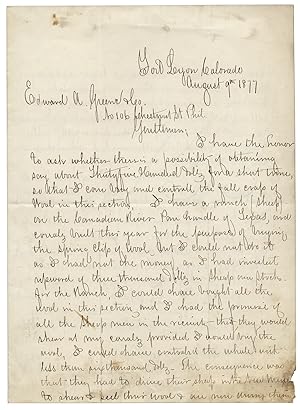 Fort Lyon Colorado
August 9th 1877
Edward A. Greene & Co.
No 106 Chestnut St Phil
Gentlemen;
I have the honor
to ask whether there is a possibility of obtaining
say about Thirty five Hundred Dolls for a short time,
so that I can buy and controll the fall crop of
Wool in this section. I have a ranch
on the Canadian River Pan handle of Texas, and
corrals built this year for the purpose of buying
the Spring Clip of Wool but I could not do it
as I had not the money as I had invested
upword of three thousand dolls in Sheep and Stock
for the Ranch, I could have bought all the
wool in this section, and I had the promise of
all the Sheep men in the vicinity that they would
shear at my corrals provided I would buy the
wool, I could have controled the whole with
less than six thousand dolls. The consequence was
that they had to drive their sheep into New Mexico
to shear & sell their wool &